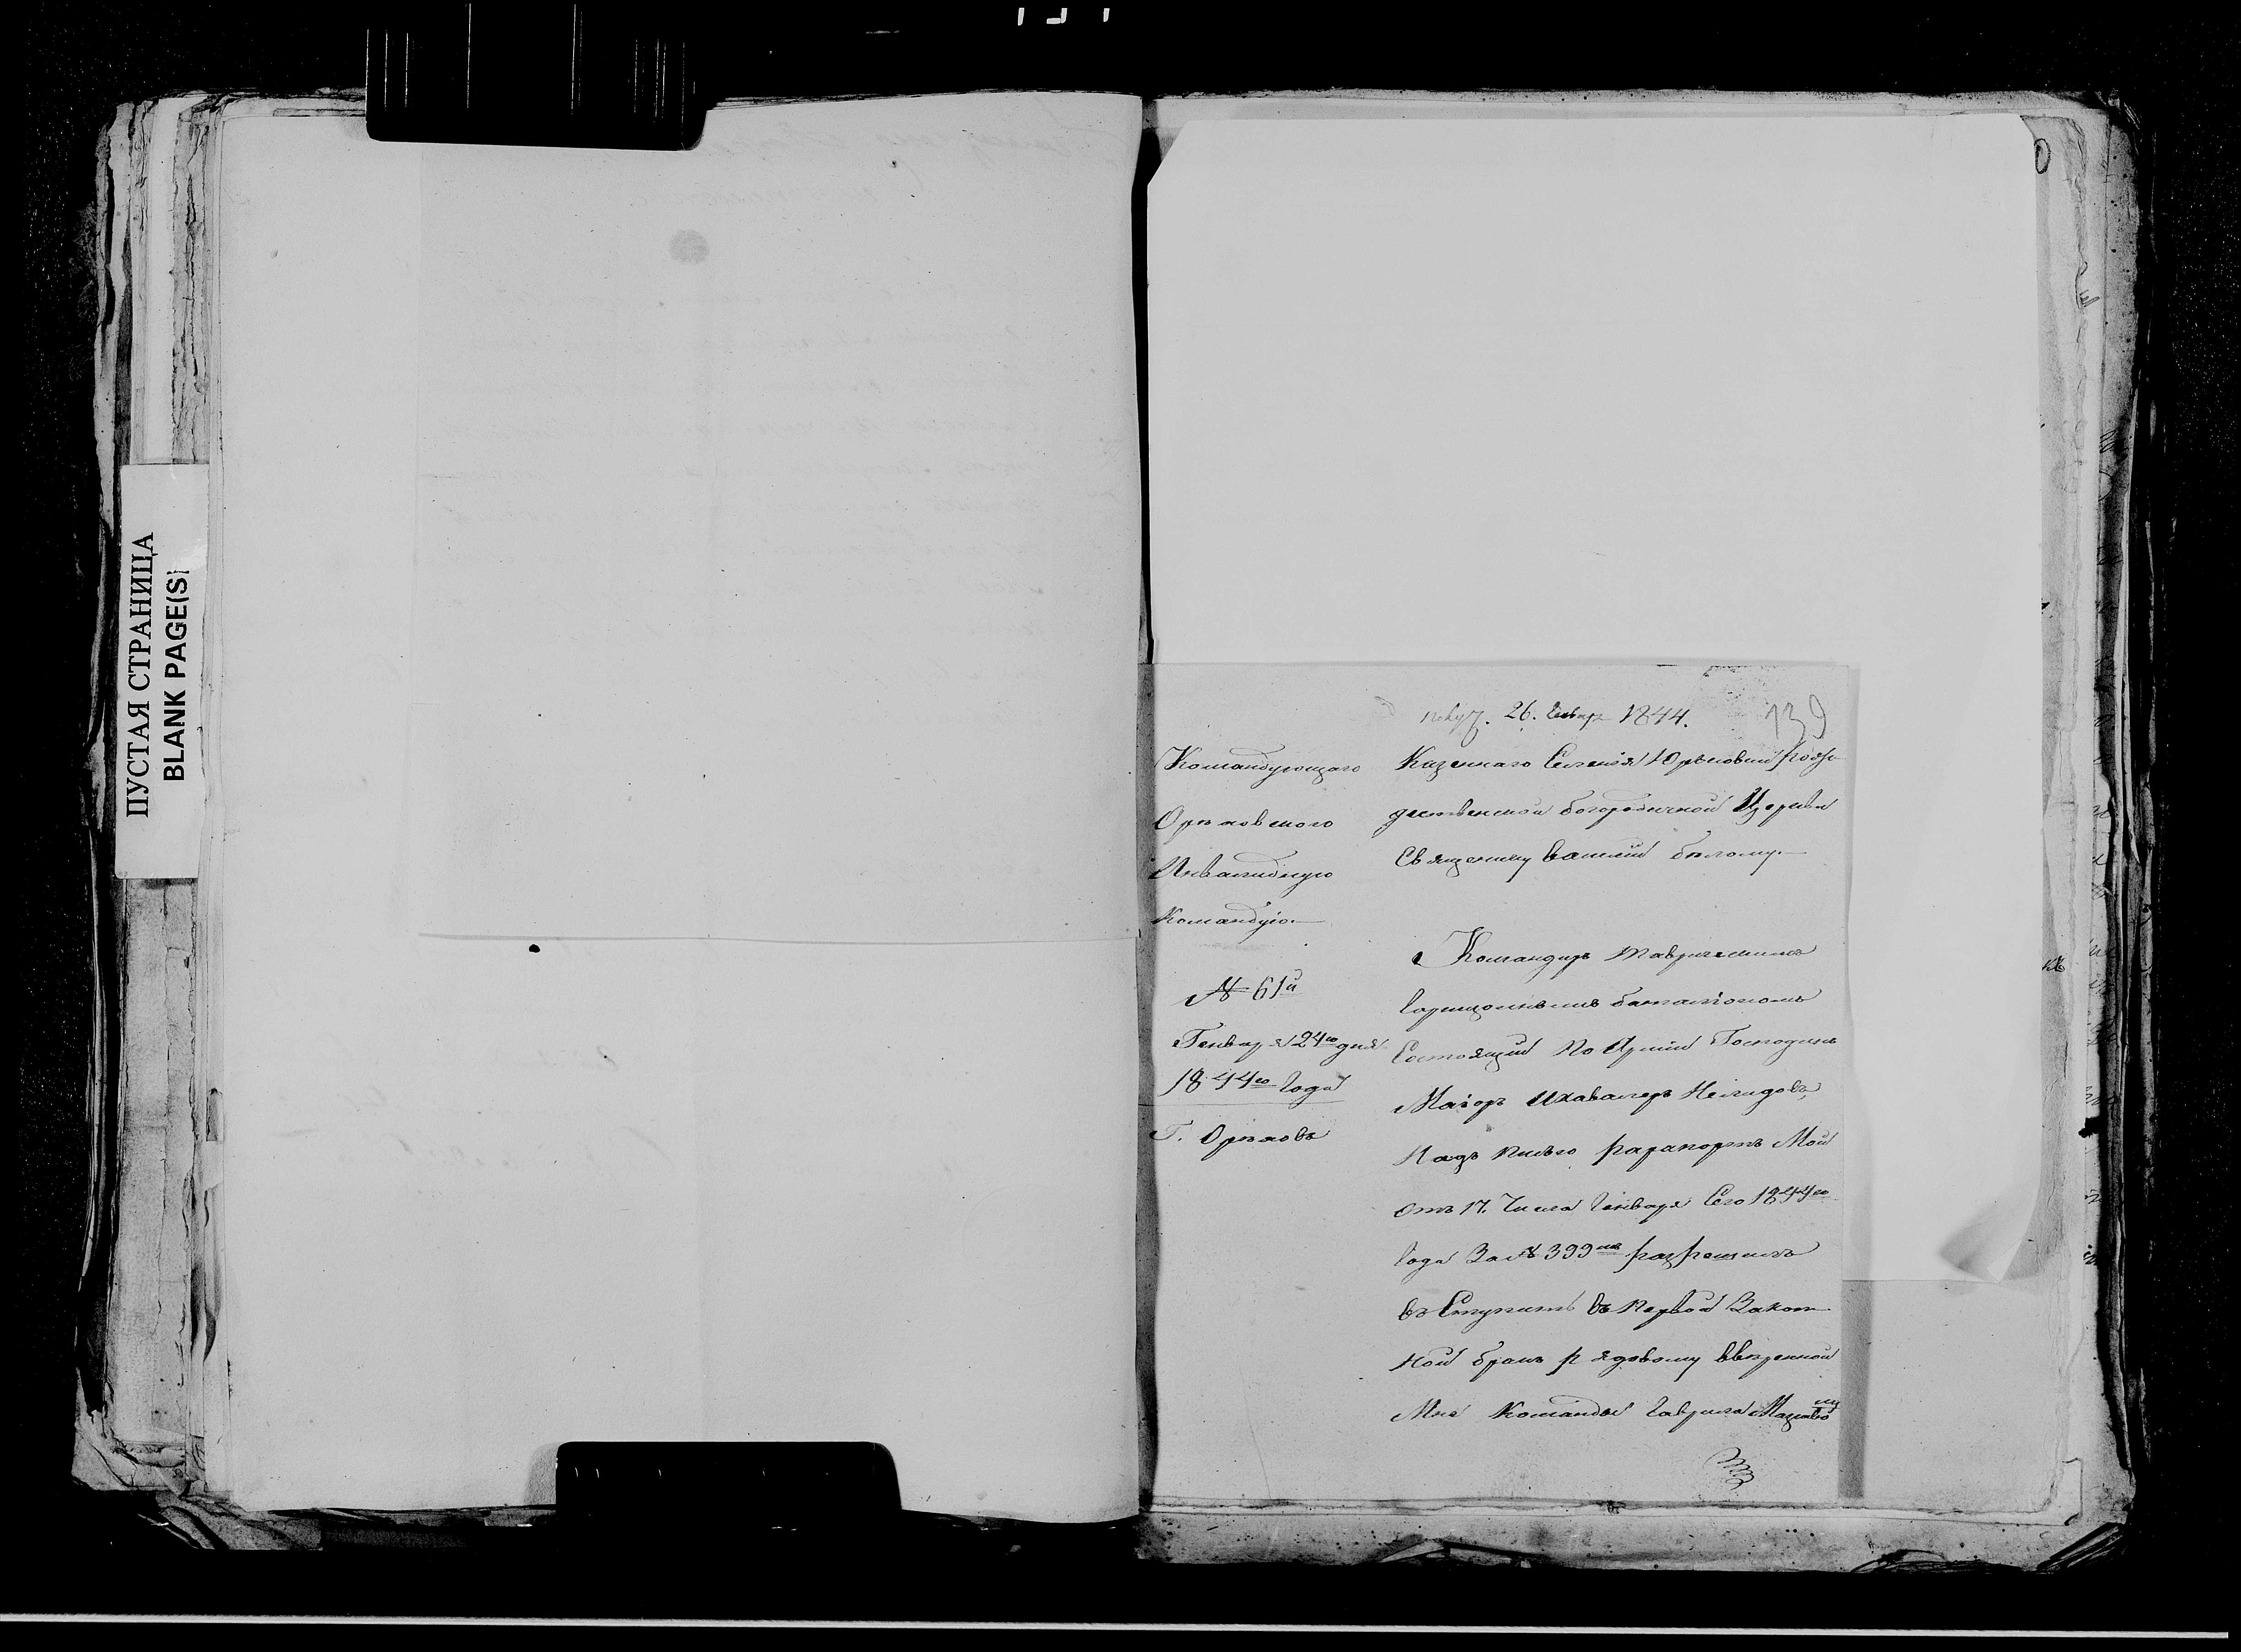 ПУСТАЯ СТРАНИЦА
BLANK PAGE(S)
получ. 26. Генвар 1844.
139
Командующаго
Орѣховского
Инвалидную
Командую.
№ 61й
Генваря 24го дня
1844го Года
Г. Орѣховъ
Казеннаго Селенія Юрьковки Рожде
дественской богородичной Церкви
Священику Василію бѣлому.
Командиръ таврическимъ
Гарнизоннымъ баталіономъ
Состоящій По Арміи Господинъ
Маіоръ Икавалеръ Нелидовъ,
Надъ писью рапортъ Мой
отъ 17. Числа Генваря Сего 1844го
Года За № 399мъ разрешилъ
въ Ступить въ Первой Закон
ной бракъ рядовому ввѣренной
Мне Команды Гаврила